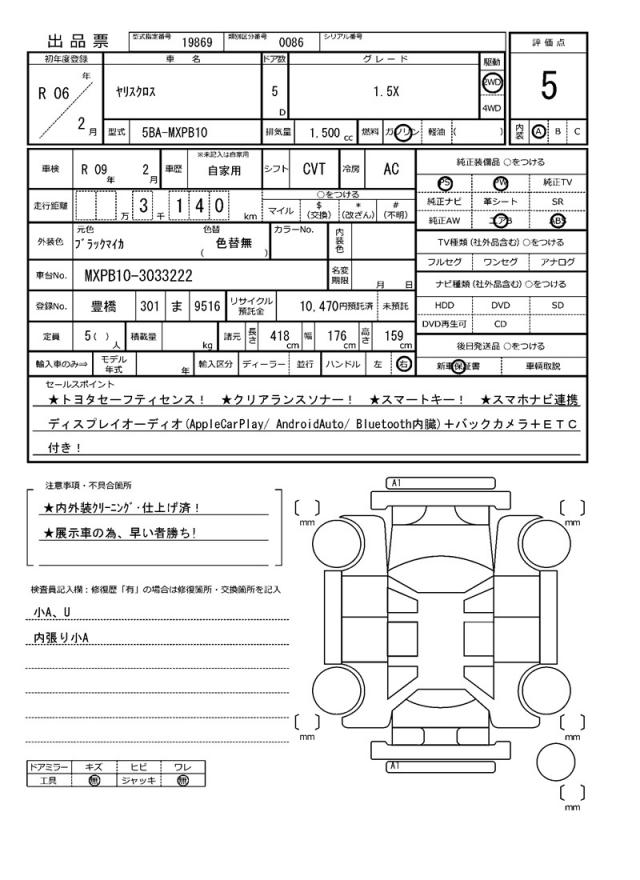 出品票
型式指定番号 19869 類別区分番号 0086 シリアル番号
評価点
5
内装 A B C
初年度登録 車名 ドア数 グレード 駆動
R 06 年 2 月
ヤリスクロス 5 D 1.5X 2WD 4WD
型式 5BA-MXPB10 排気量 1.500 cc 燃料 ガソリン 軽油 ( )
車検 R 09 年 2 月 車歴 ※未記入は自家用 自家用 シフト CVT 冷房 AC
走行距離 万 3 千 1 4 0 km
○をつける
マイル $(交換) *(改ざん) #(不明)
外装色 元色 ブラックマイカ 色替 ( 色替無 ) カラーNo. 内装色
車台No. MXPB10-3033222 名変期限 月 日
登録No. 豊橋 301 ま 9516 リサイクル預託金 10,470円預託済 未預託
定員 5( ) 人 積載量 kg 諸元 長さ 418 cm 幅 176 cm 高さ 159 cm
輸入車のみ⇒ モデル年式 年 輸入区分 ディーラー 並行 ハンドル 左 右
純正装備品 ○をつける
PS PW 純正TV
純正ナビ 革シート SR
純正AW エアB ABS
TV種類(社外品含む)○をつける
フルセグ ワンセグ アナログ
ナビ種類(社外品含む)○をつける
HDD DVD SD
DVD再生可 CD
後日発送品 ○をつける
新車保証書 車輌取説
セールスポイント
★トヨタセーフティセンス! ★クリアランスソナー! ★スマートキー! ★スマホナビ連携
ディスプレイオーディオ(AppleCarPlay/ AndroidAuto/ Bluetooth内臓)+バックカメラ+ETC
付き!
注意事項・不具合箇所
★内外装クリーニング・仕上げ済!
★展示車の為、早い者勝ち!
検査員記入欄:修復歴「有」の場合は修復箇所・交換箇所を記入
小A、U
内張り小A
ドアミラー キズ ヒビ ワレ
工具 無 ジャッキ 無
A1
[ ] mm [ ] mm
[ ] mm [ ] mm
A1
[ ] mm